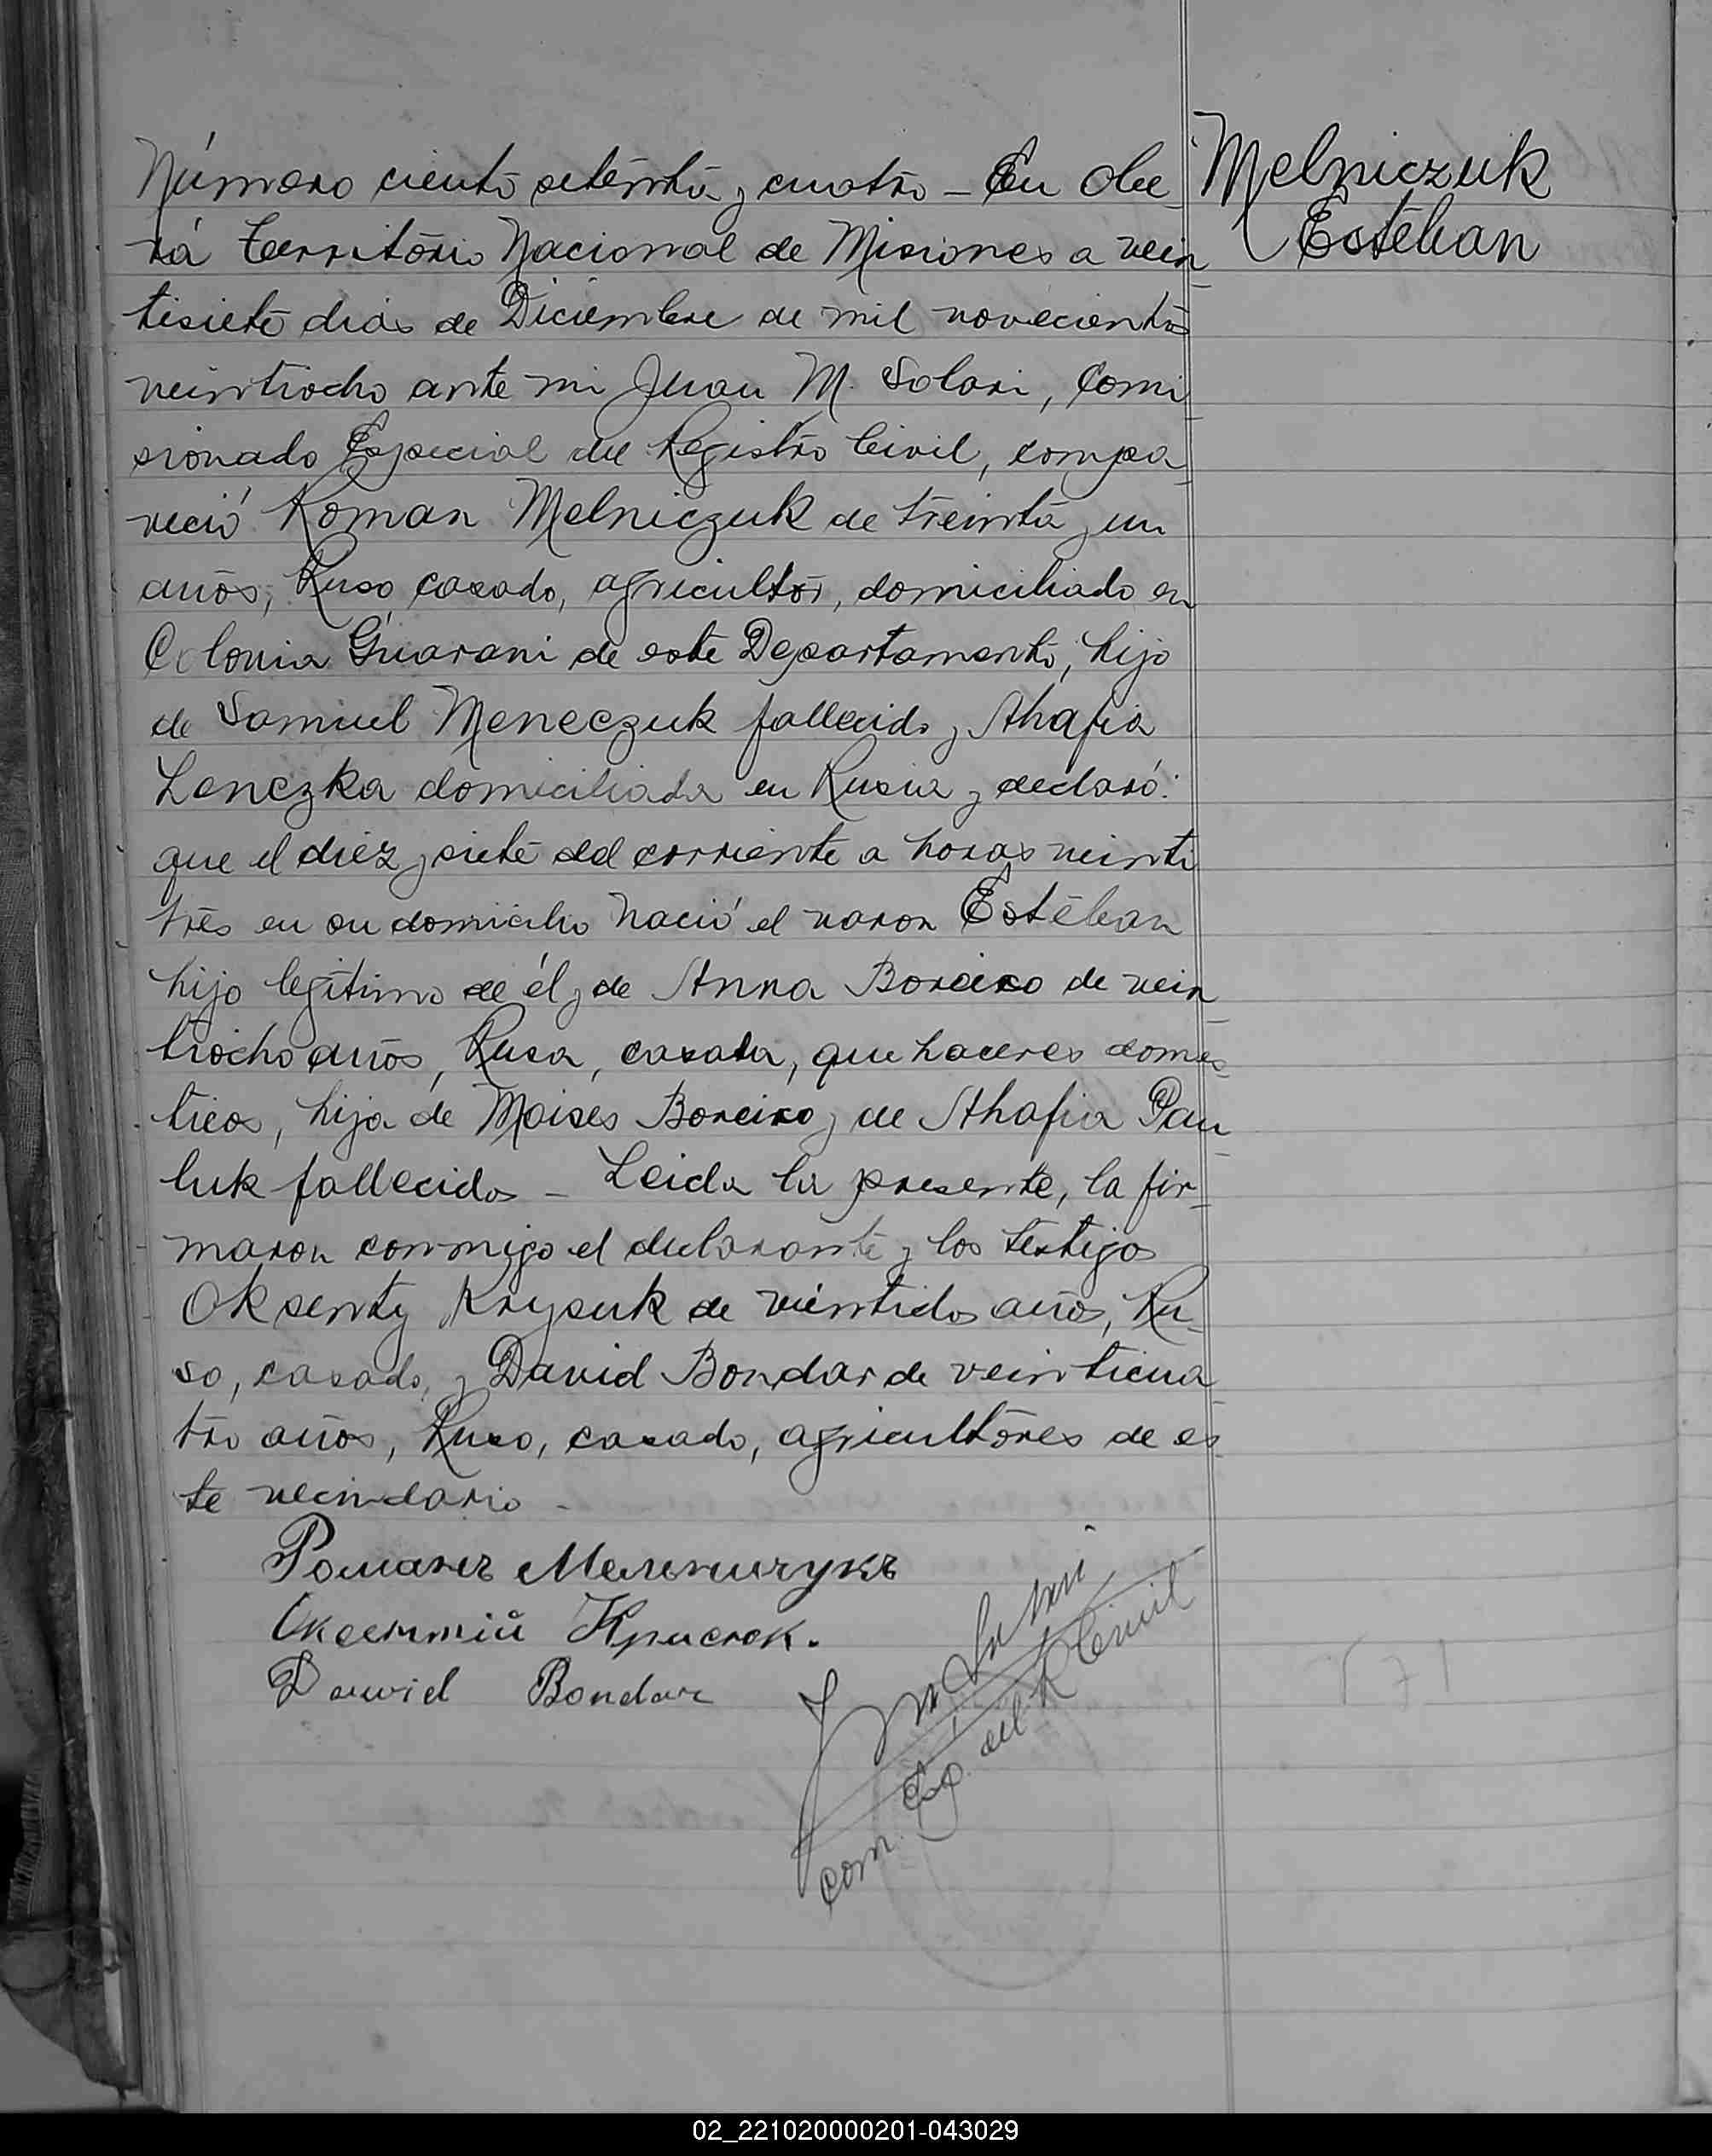 Número ciento setenta y cuatro - En Obe
rá Territorio Nacional de Misiones a vein
tisiete dias de Diciembre de mil novecientos
veintiocho ante mi Juan M. Solari, Comi
sionado Especial del Registro Civil, compa
reció Roman Melniczuk de treinta y un
años, Ruso, casado, agricultor, domiciliado en
Colonia Guarani de este Departamento, hijo
de Samuel Meneczuk fallecido y Ahafia
Lenczka domiciliada en Rusia y declaró:
que el diez y siete del corriente a horas veinti
tres en su domicilio nació el varon Estéban
hijo legítimo de él y de Anna Boreiko de vein
tiocho años, Rusa, casada, que haceres domes
ticos, hija de Moises Boreiko y de Ahafia Pau
luk fallecidos - Leida la presente, la fir
maron conmigo el declarante y los testigos
Oksenty Krysuk de veintidos años, Ru
so, casado, y David Bondar de veinticua
tro años, Ruso, casado, agricultores de es
te vecindario -
Романъ Мельничукъ
Оксентій Крисюк.
Dawid Bondar
Juan M Solari
Com. Esp. del R Civil
Melniczuk
Estéban
171
02_221020000201-043029